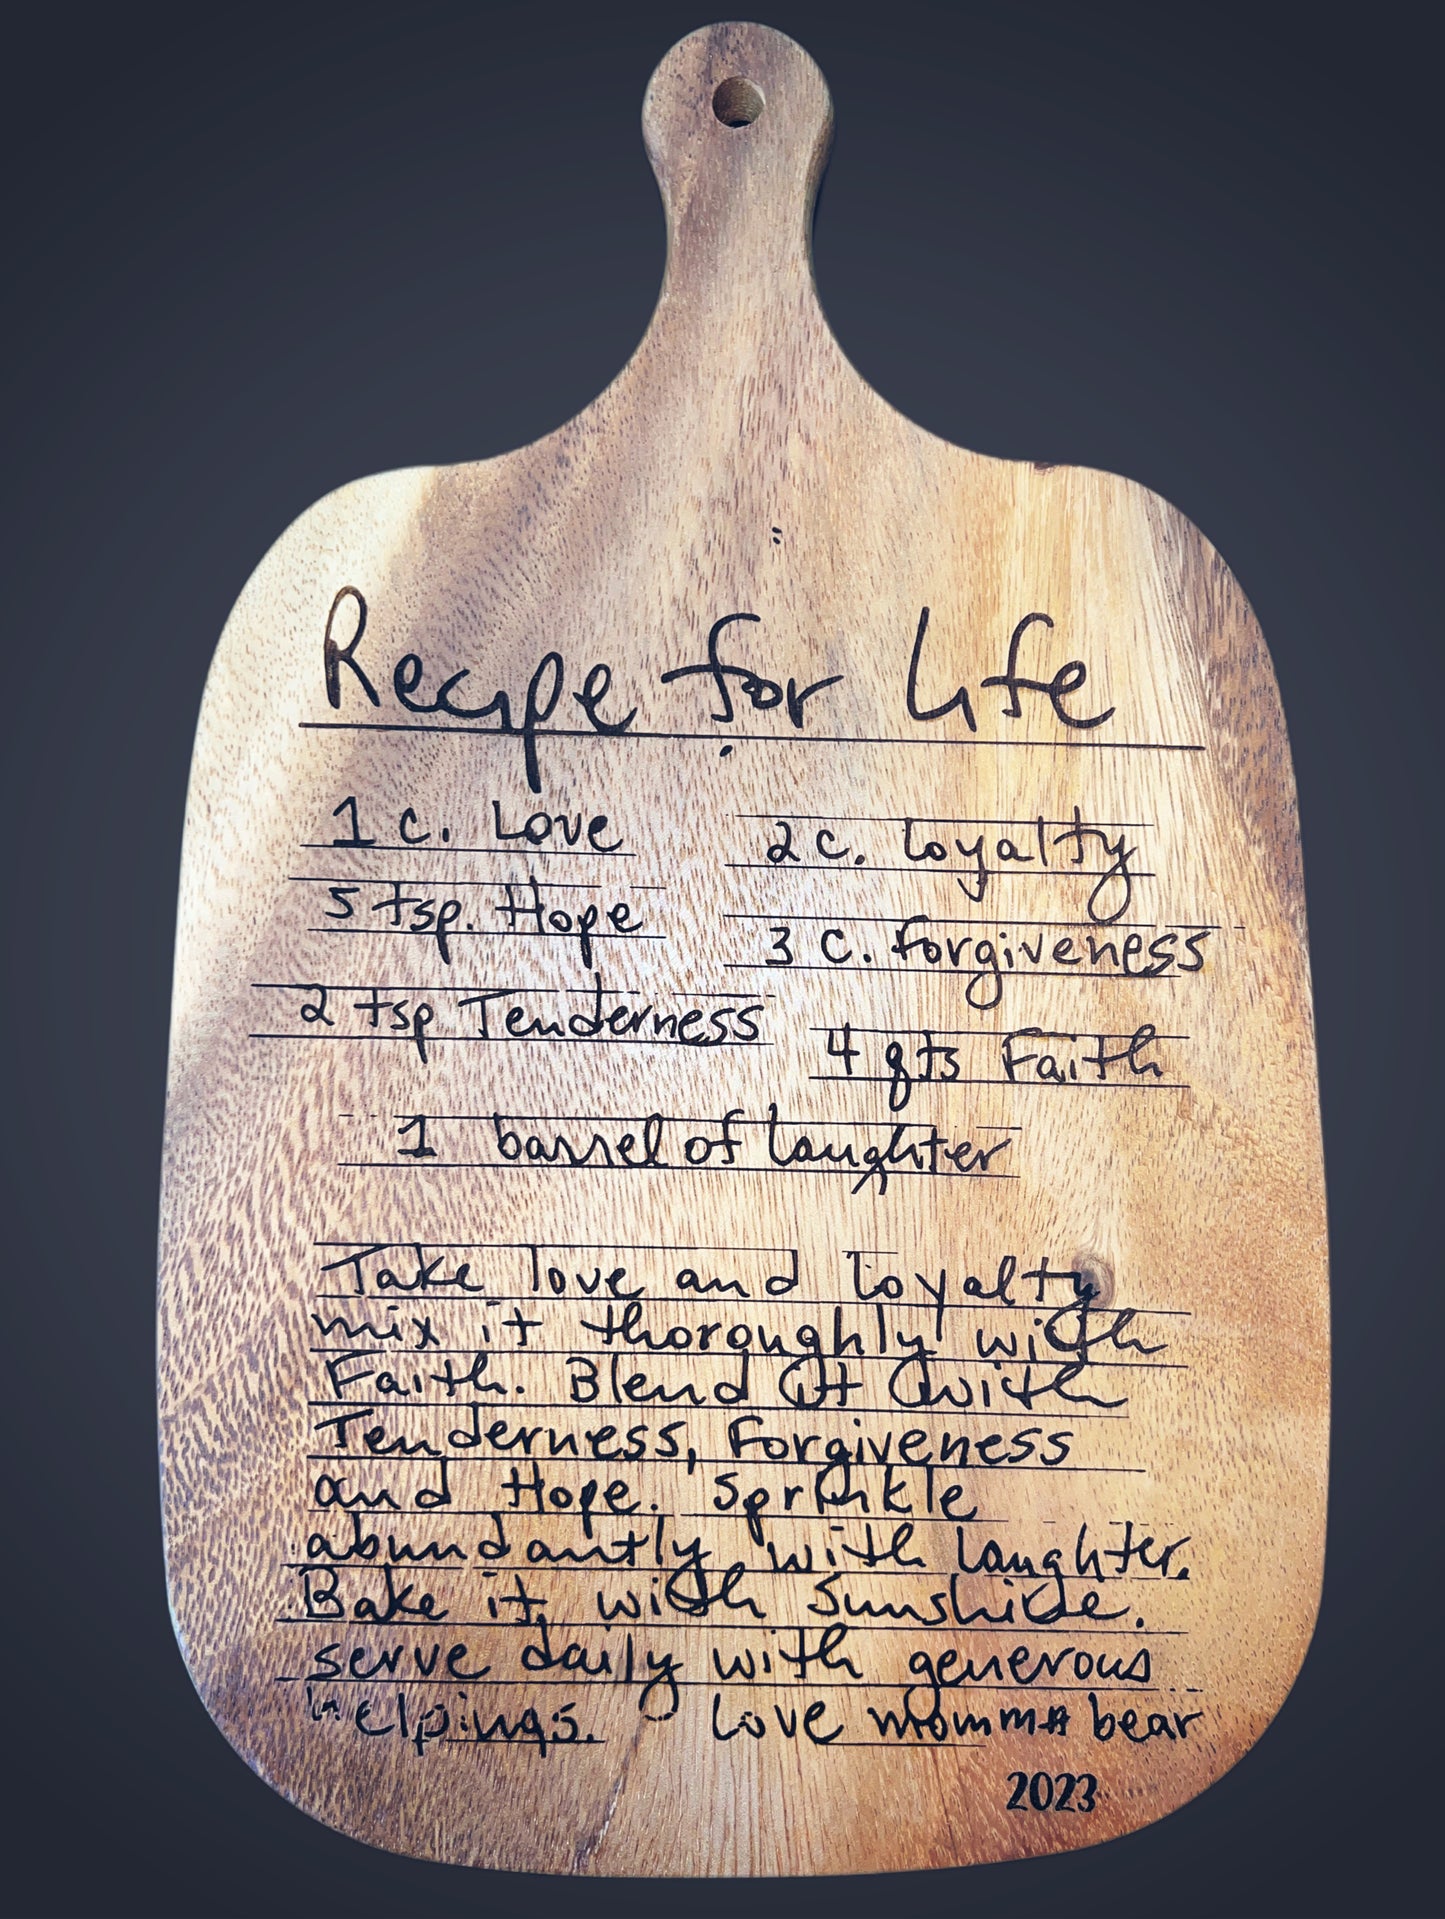 Recipe for Life
1 c. Love
2 c. Loyalty
5 tsp. Hope
3 c. Forgiveness
2 tsp Tenderness
4 qts Faith
1 barrel of Laughter
Take love and Loyalty
mix it thoroughly with
Faith. Blend it with
Tenderness, Forgiveness
and Hope. Sprinkle
abundantly with Laughter.
Bake it with Sunshine.
serve daily with generous
helpings. Love momma bear
2023